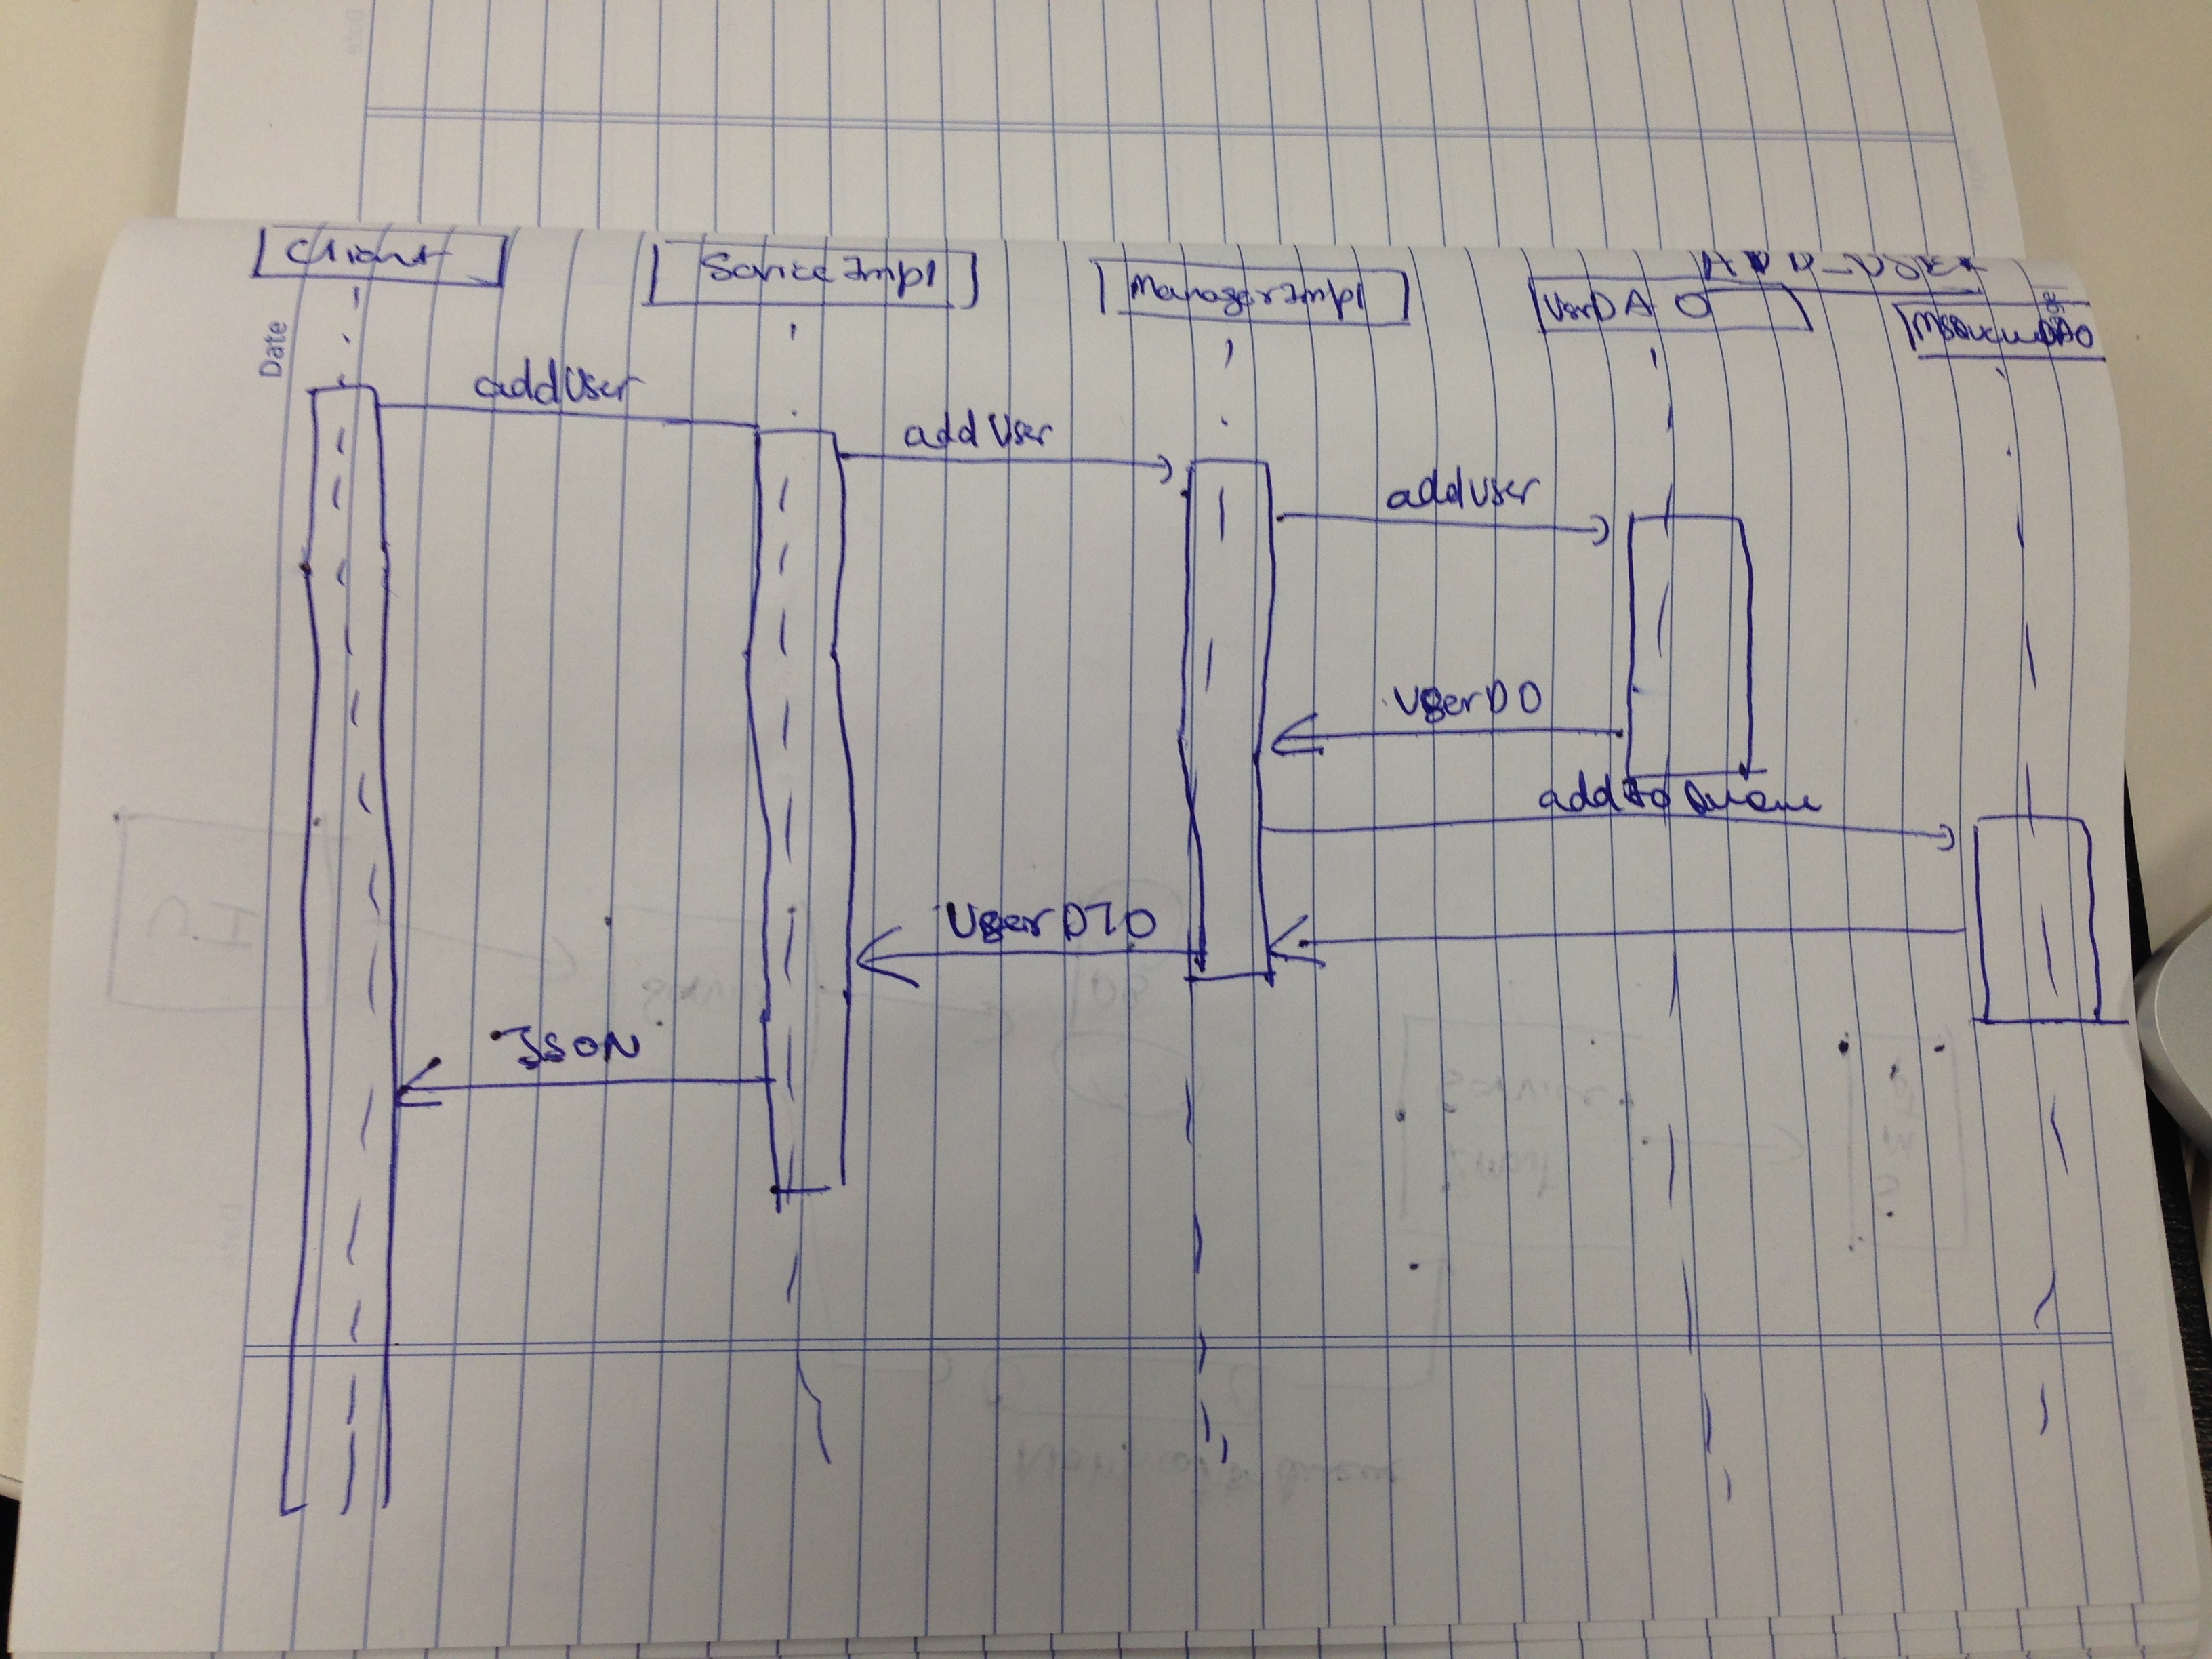 Client
ServiceImpl
ManagerImpl
ADD-USER
UserDAO
Date
addUser
addUser
addUser
UserDO
addtoQueue
UserDTO
JSON